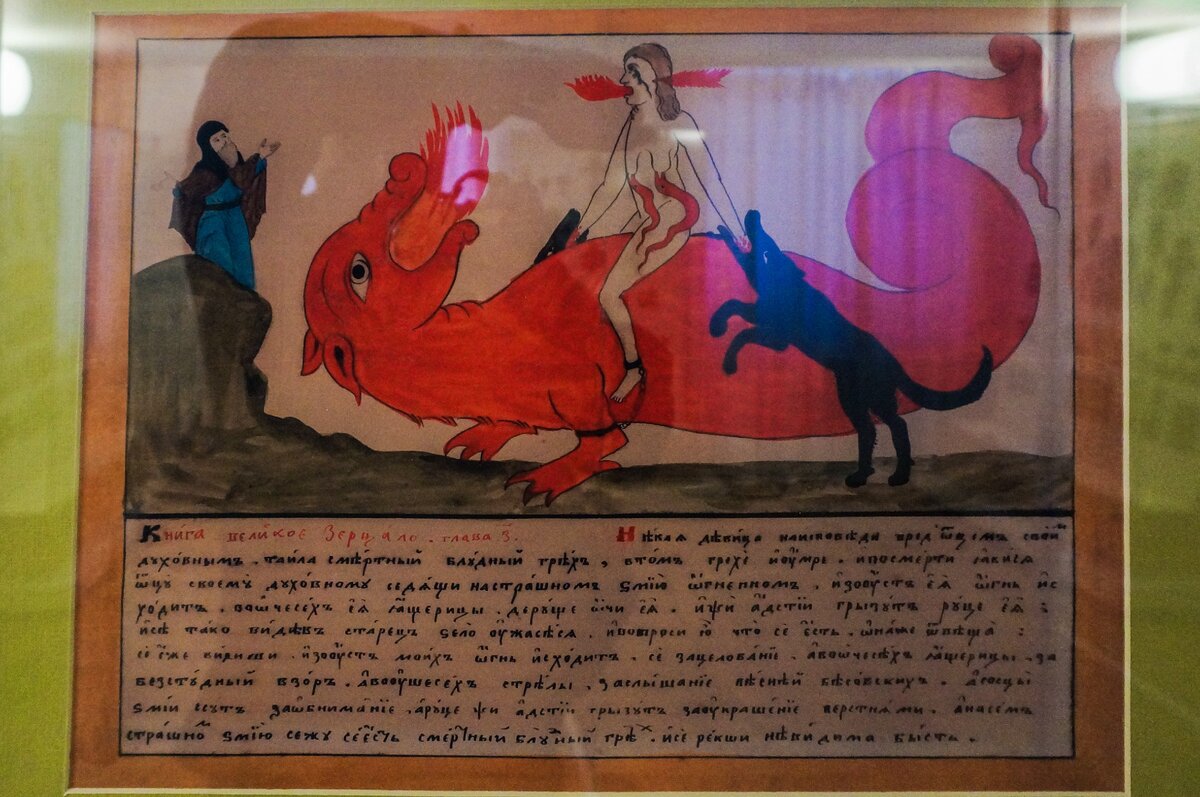 Книга великое Зерцало. глава з҃. Нѣкая дѣвица наисповѣди пред ѿцемъ свои
духо́внымъ. таи́ла смертный блу́дный грѣхъ, втомъ грехѐ ио҆у́мре. ипосмерти ꙗ҆ви́ся
ѿцу̀ своему̀ духо́вному седѧщи настра́шномъ ѕмі́ю ѡ҆́гненномъ, и҆зоу҆́стъ еѧ̀ ѡ҆́гнь и҆с
хо́дитъ. воѻ҆чесе́хъ еѧ̀ ꙗ҆́щерицы. деру́ще ѻ҆́чи еѧ̀. и҆псѝ а҆́дстіи грызу́тъ ру́це еѧ̀:
и҆сѐ та́ко ви́дѣвъ ста́рецъ ѕело̀ оу҆жасе́ся. ивопросѝ ю҆̀ что̀ сѐ е҆́сть. ѡ҆на́же ѿвѣща̀:
сѐ е҆́же ви́диши. и҆зоу҆́стъ мои́хъ ѡ҆́гнь и҆схо́дитъ. сѐ зацелова́ніе. а҆воѻ҆чесе́хъ ꙗ҆́щерицы. за
безсту́дный взо́ръ. а҆воо҆ушесе́хъ стре́лы, заслы́шаніе пѣ́сней бѣсовскихъ. а҆сосцы̀
ѕмі́и ссу́тъ заѡ҆бнима́ніе. а҆ру́це псѝ а҆́дстіи грызу́тъ заоу҆краше́ніе перстня́ми. а҆насемъ
стра́шно ѕмі́ю сежу̀ се́е҆сть сме́ртный блу́дный грѣ́х. и҆сѐ ре́кши неви́дима бы́сть.